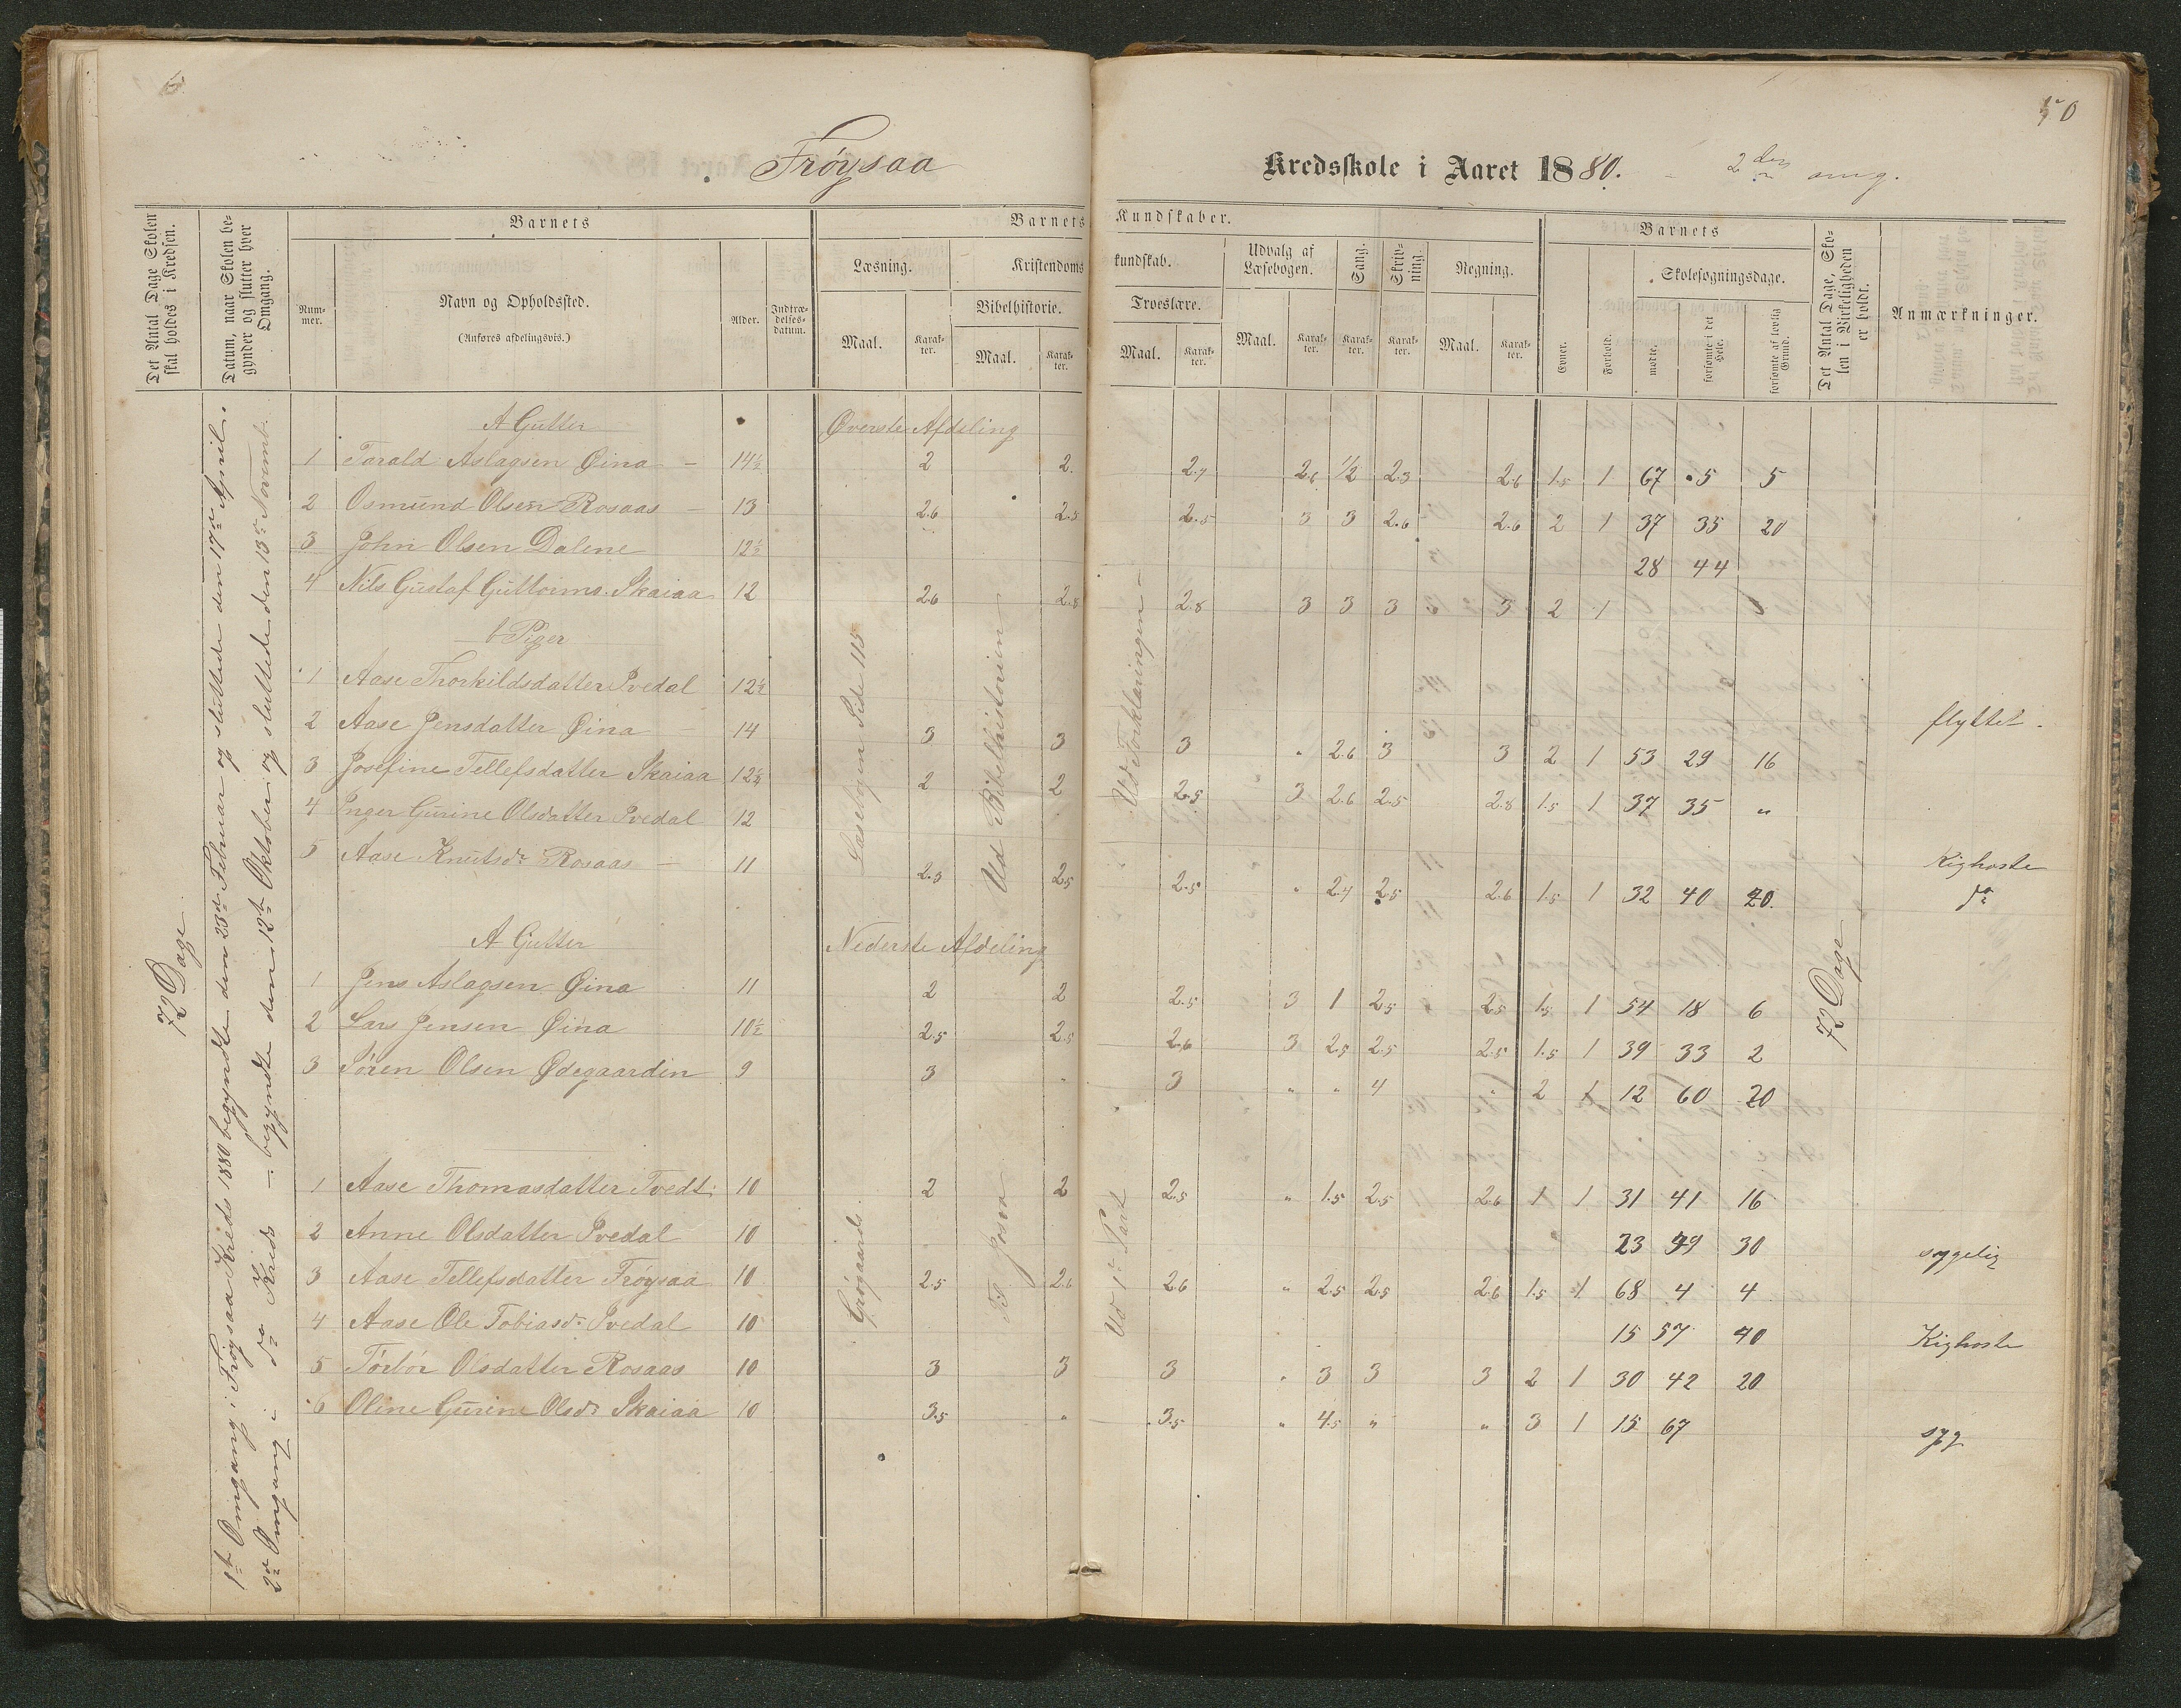 6
50
Frøysaa
Kredsskole i Aaret 1880. - 2den omg.
Det Antal Dage Skolen skal holdes i Kredsen.
Datum, naar Skolen begynder og slutter hver Omgang.
Barnets
Num-mer.
Navn og Opholdssted.
(Anføres afdelingsvis.)
Alder.
Indtræ-delses-datum.
Barnets Kundskaber.
Læsning.
Maal.
Karak-ter.
Kristendomskundskab.
Bibelhistorie.
Maal.
Karak-ter.
Troeslære.
Maal.
Karak-ter.
Udvalg af Læsebogen.
Maal.
Karak-ter.
Sang.
Karak-ter.
Skriv-ning.
Karak-ter.
Regning.
Maal.
Karak-ter.
Barnets
Evner.
Forhold.
Skolesøgningsdage.
mødte.
forsømte i det Hele.
forsømte af lovlig Grund.
Det Antal Dage, Skolen i Virkeligheden er holdt.
Anmærkninger.
72 Dage
1ste Omgang i Frøysaa Kreds 1880 begyndte den 23de Februar og sluttede den 17de April.
2den Omgang i do Kreds - begyndte den 12te Oktober og sluttede den 13de Novemb.
A Gutter
Øverste Afdeling
1 Tarald Aslagsen Øina - 14½ 2 2. 2.7 2.6 1/2 2.3 2.6 1.5 1 67 5 5
2 Osmund Olsen Rosaas - 13 2.6 2.5 2.5 3 3 2.6 2.6 2 1 37 35 20
3 John Olsen Dalene 12½ 28 44
4 Nils Gustaf Guttorms. Skaiaa 12 2.6 2.8 2.8 3 3 3 3 2 1
b Piger
1 Aase Thorkildsdatter Svedal 12½ flyttet.
2 Aase Jensdatter Øina - 14 3 3 3 " 2.6 3 3 2 1 53 29 16
3 Josefine Tellefsdatter Skaiaa 12½ 2 2 2.5 3 2.6 2.5 2.8 1.5 1 37 35 "
4 Inger Gurine Olsdatter Svedal 12 Kighoste
5 Aase Knutsdr Rosaas - 11 2.3 2.5 2.5 " 2.7 2.5 2.6 1.5 1 32 40 20. do
Læsebogen Side 115
Ud Bibelhistorien
Ud Forklaringen -
A Gutter
Nederste Afdeling
1 Jens Aslagsen Øina 11 2 2 2.5 3 1 2.5 2.5 1.5 1 54 18 6
2 Lars Jensen Øina 10½ 2.5 2.5 2.6 3 2.5 2.5 2.5 1.5 1 39 33 2
3 Søren Olsen Ødegaarden 9 3 " 3 " " 4 " 2 1 12 60 20
72 Dage
1 Aase Thomasdatter Tvedt 10 2 2 2.5 " 1.5 2.5 2.6 1 1 31 41 16
2 Anne Olsdatter Svedal 10 23 49 30 sygelig
3 Aase Tellefsdatter Frøysaa 10 2.5 2.6 2.6 " 2.5 2.5 2.6 1.5 1 68 4 4
4 Aase Ole Tobiasdr Svedal 10 15 57 40 Kighoste
5 Torbor Olsdatter Rosaas 10 3 3 3 " 3 3 3 2 1 30 42 20
6 Oline Gurine Olsdr Skaiaa 10 3.5 " 3.5 " 4.5 " " 3 1 15 67 syg
Grøgaards.
Til Josva
Ud 1ste Part